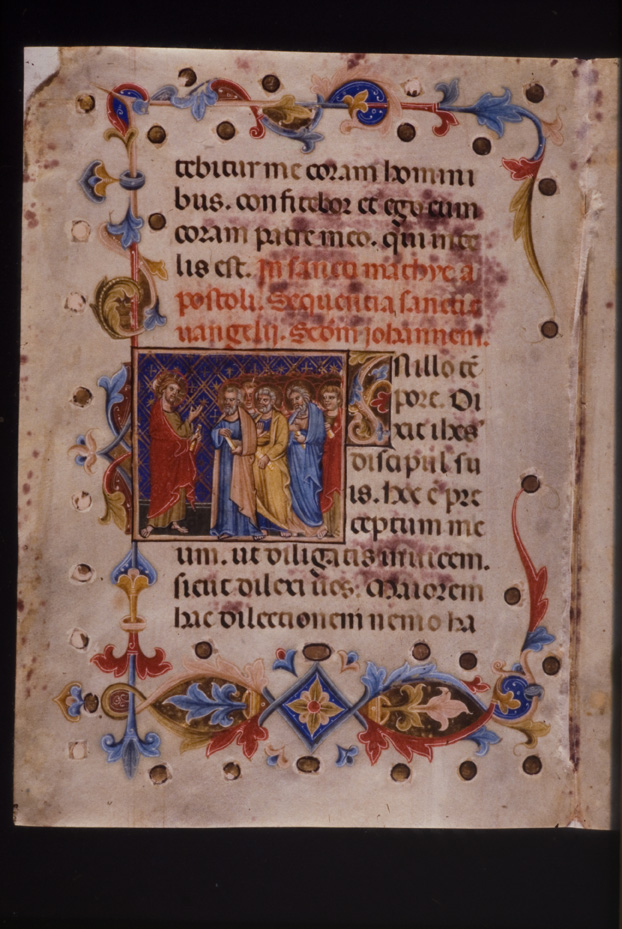 tebitur me coram homini
bus. confitebor et ego eum
coram patre meo. qui in ce
lis est. In sancti mathye a
postoli. Sequentia sancti e
uangelij. Scdm iohannem.
In illo tē
pore. Di
xit ihxs
discipul' su
is. hxc ē pre
ceptum me
um. ut diligatis inuicem.
sicut dilexi uos. Maiorem
hac dilectionem nemo ha